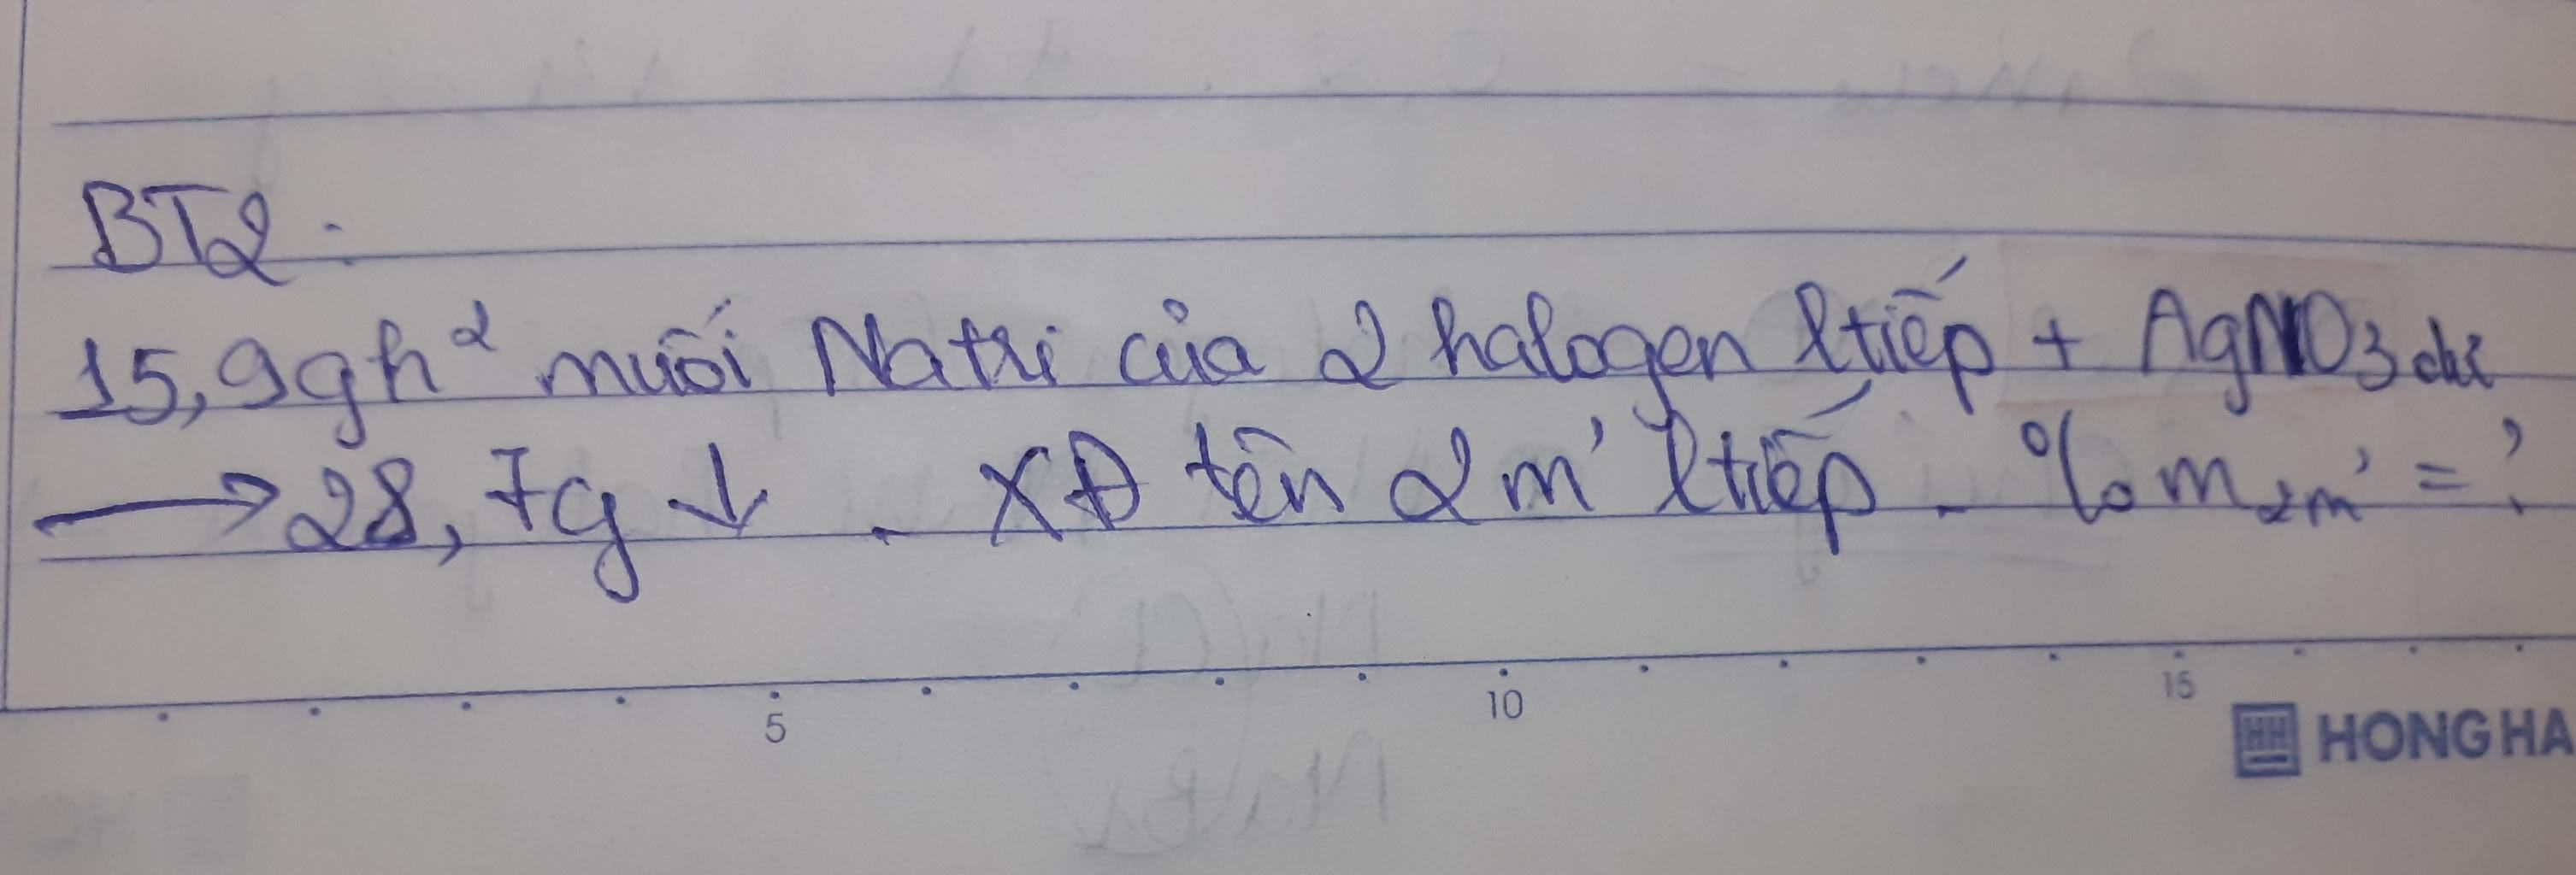 BT2:
15,9g h² muối Natri của 2 halogen ltiếp + AgNO3 dư
→ 28,7g ↓. XĐ tên 2 m' ltiếp. % m2m' = ?
5 10 15
HONG HA